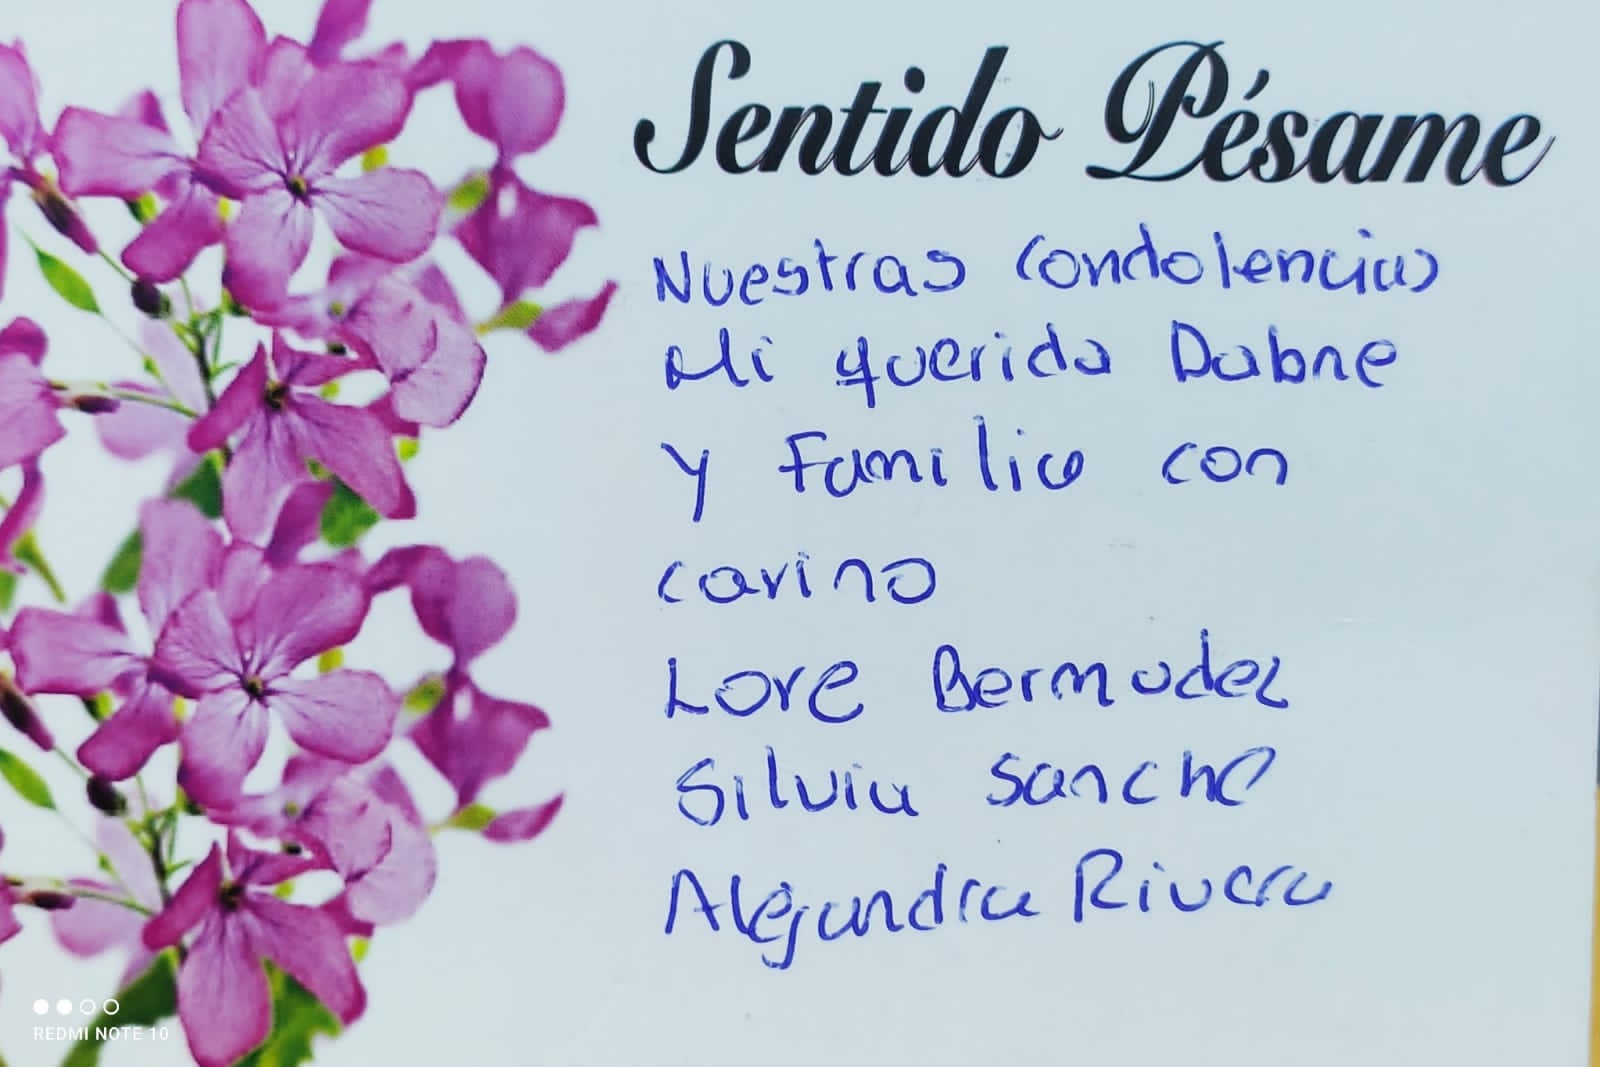 Sentido Pésame
Nuestras condolencias
Mi querida Dabne
y Familia con
carino
Lore Bermudez
Silvia Sancho
Alejandra Rivera
REDMI NOTE 10